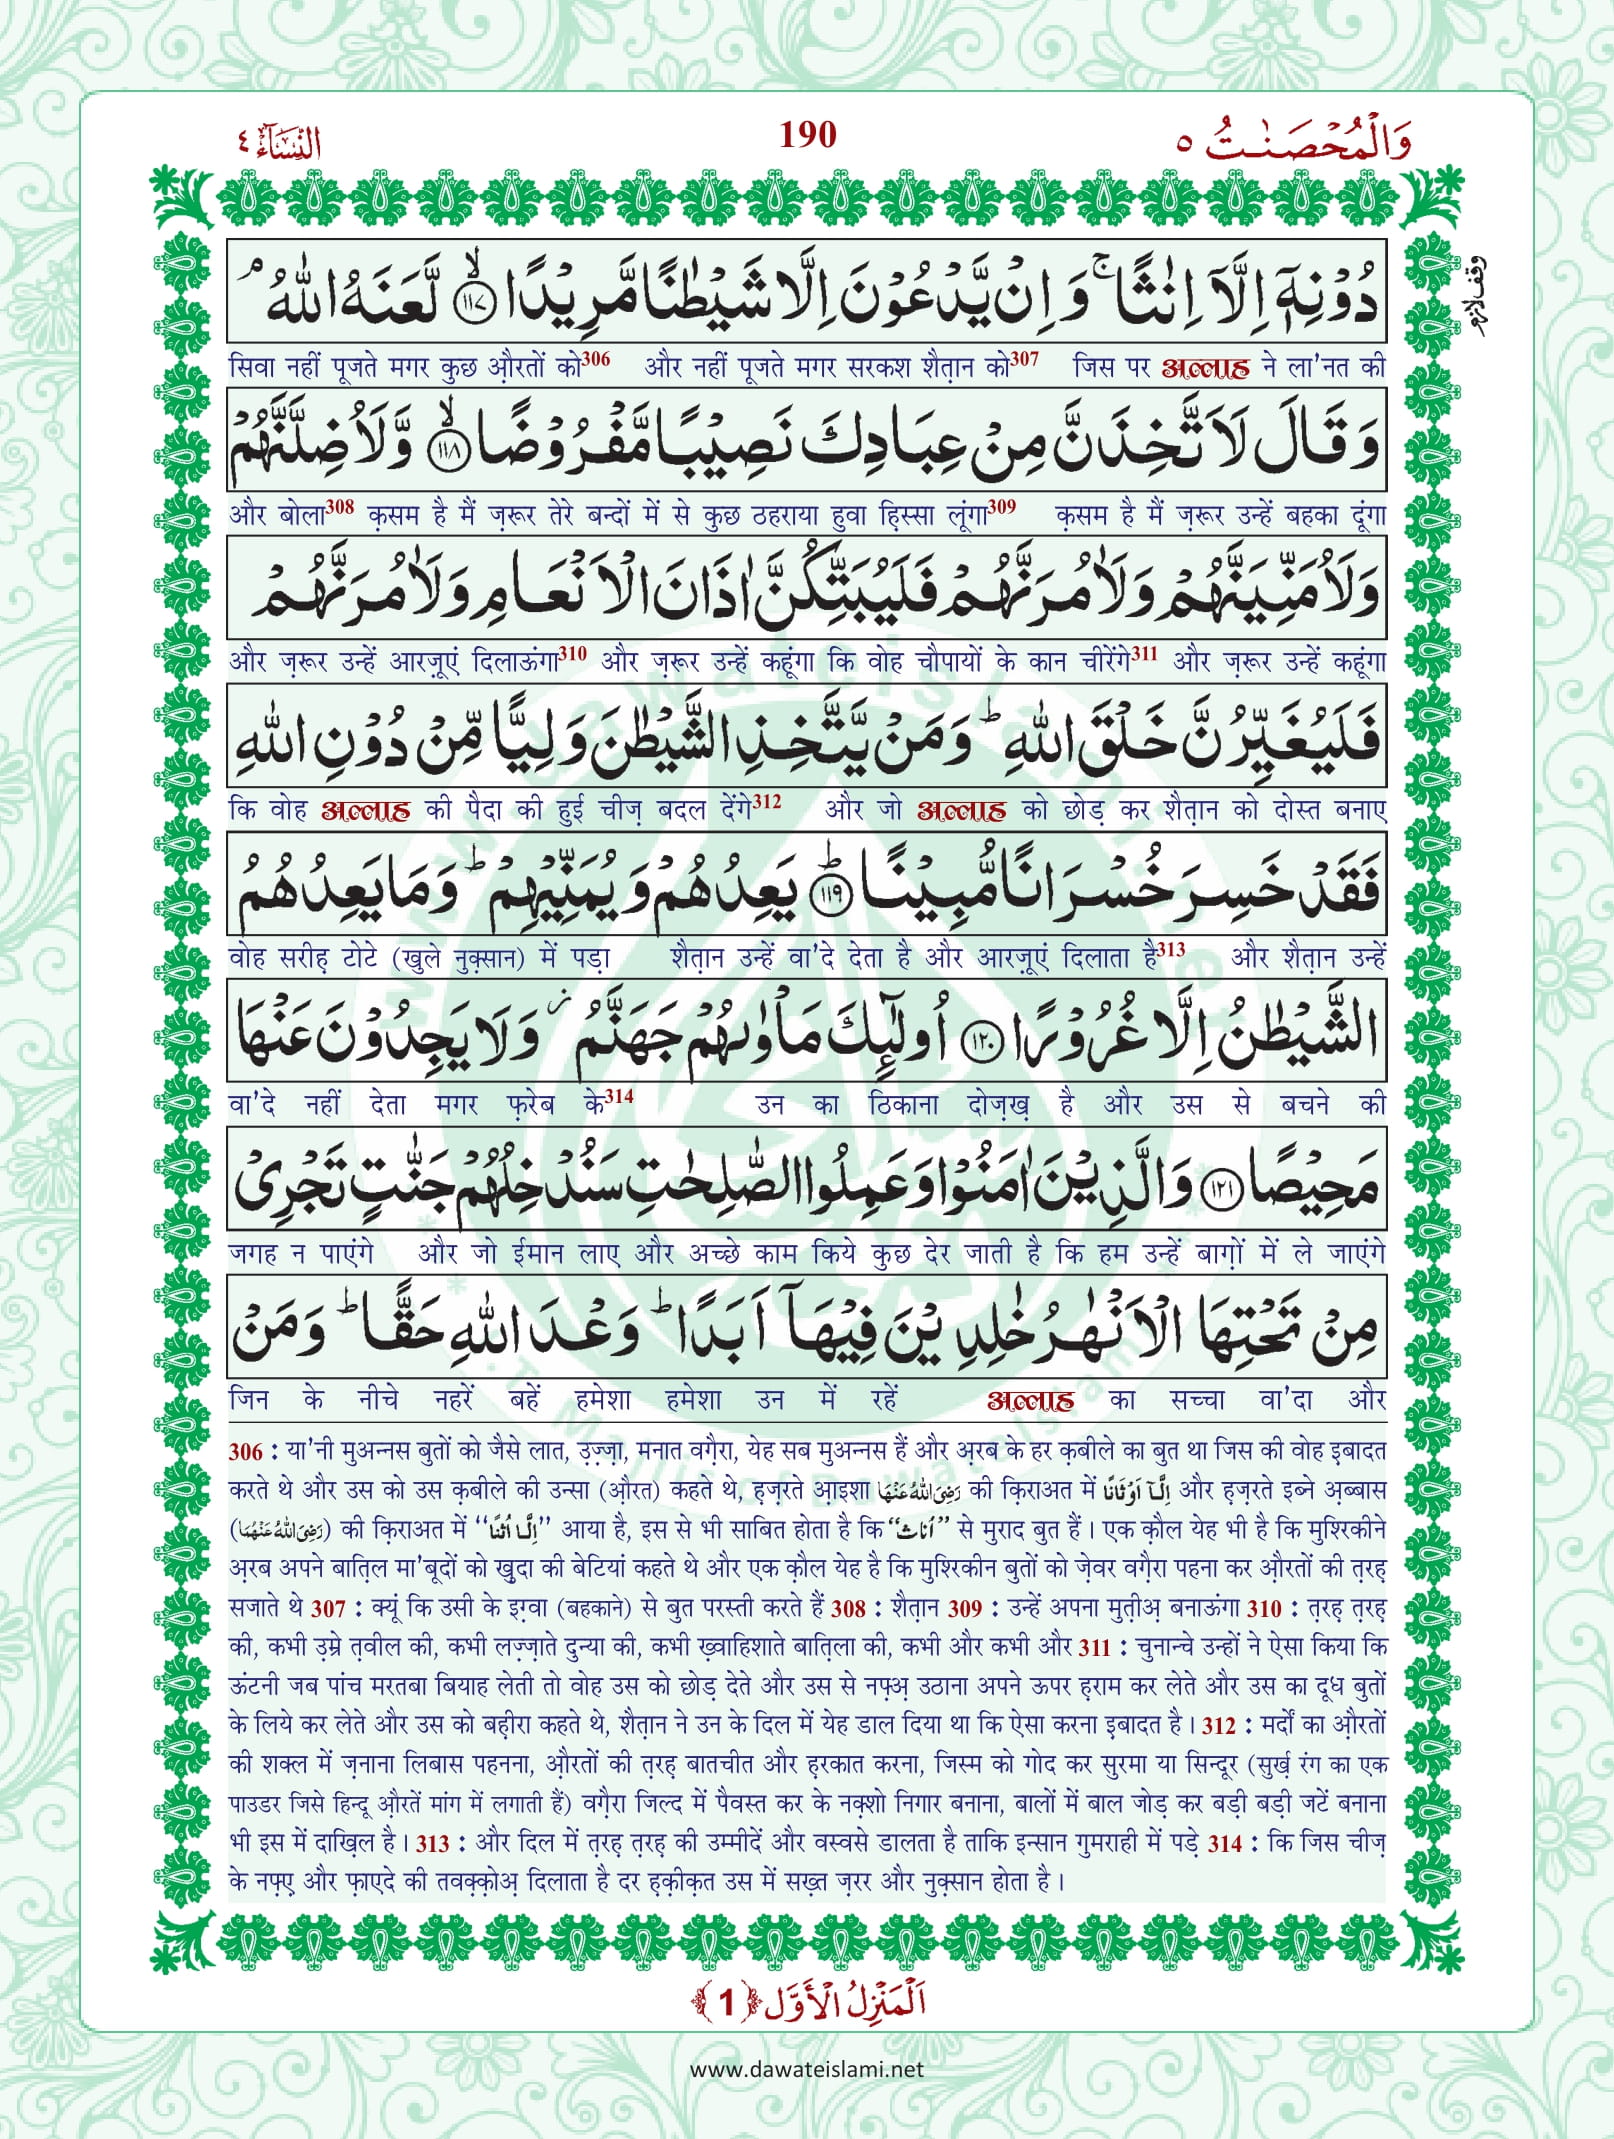 وَالْمُحْصَنٰتُ ٥
190
النِّسَآء ٤
دُوْنِهٖۤ اِلَّاۤ اِنٰثًا ۚ وَ اِنْ یَّدْعُوْنَ اِلَّا شَیْطٰنًا مَّرِیْدًا ۙ﴿۱۱۷﴾ لَّعَنَهُ اللّٰهُ ۘ
وقف لازم
सिवा नहीं पूजते मगर कुछ औ़रतों को306 और नहीं पूजते मगर सरकश शैत़ान को307 जिस पर अल्लाह ने ला'नत की
وَ قَالَ لَاَتَّخِذَنَّ مِنْ عِبَادِكَ نَصِیْبًا مَّفْرُوْضًا ۙ﴿۱۱۸﴾ وَّ لَاُضِلَّنَّهُمْ
और बोला308 क़सम है मैं ज़रूर तेरे बन्दों में से कुछ ठहराया हुवा ह़िस्सा लूंगा309 क़सम है मैं ज़रूर उन्हें बहका दूंगा
وَ لَاُمَنِّیَنَّهُمْ وَ لَاٰمُرَنَّهُمْ فَلَیُبَتِّكُنَّ اٰذَانَ الْاَنْعَامِ وَ لَاٰمُرَنَّهُمْ
और ज़रूर उन्हें आरज़ूएं दिलाऊंगा310 और ज़रूर उन्हें कहूंगा कि वोह चौपायों के कान चीरेंगे311 और ज़रूर उन्हें कहूंगा
فَلَیُغَیِّرُنَّ خَلْقَ اللّٰهِ ؕ وَ مَنْ یَّتَّخِذِ الشَّیْطٰنَ وَلِیًّا مِّنْ دُوْنِ اللّٰهِ
कि वोह अल्लाह की पैदा की हुई चीज़ बदल देंगे312 और जो अल्लाह को छोड़ कर शैत़ान को दोस्त बनाए
فَقَدْ خَسِرَ خُسْرَانًا مُّبِیْنًا ؕ﴿۱۱۹﴾ یَعِدُهُمْ وَ یُمَنِّیْهِمْ ؕ وَ مَا یَعِدُهُمُ
वोह सरीह़ टोटे (खुले नुक़्सान) में पड़ा शैत़ान उन्हें वा'दे देता है और आरज़ूएं दिलाता है313 और शैत़ान उन्हें
الشَّیْطٰنُ اِلَّا غُرُوْرًا ﴿۱۲۰﴾ اُولٰٓىِٕكَ مَاْوٰىهُمْ جَهَنَّمُ ٘ وَ لَا یَجِدُوْنَ عَنْهَا
वा'दे नहीं देता मगर फ़रेब के314 उन का ठिकाना दोज़ख़ है और उस से बचने की
مَحِیْصًا ﴿۱۲۱﴾ وَ الَّذِیْنَ اٰمَنُوْا وَ عَمِلُوا الصّٰلِحٰتِ سَنُدْخِلُهُمْ جَنّٰتٍ تَجْرِیْ
जगह न पाएंगे और जो ईमान लाए और अच्छे काम किये कुछ देर जाती है कि हम उन्हें बाग़ों में ले जाएंगे
مِنْ تَحْتِهَا الْاَنْهٰرُ خٰلِدِیْنَ فِیْهَاۤ اَبَدًا ؕ وَعْدَ اللّٰهِ حَقًّا ؕ وَ مَنْ
जिन के नीचे नहरें बहें हमेशा हमेशा उन में रहें अल्लाह का सच्चा वा'दा और
306 : या'नी मुअन्नस बुतों को जैसे लात, उ़ज़्ज़ा, मनात वग़ैरा, येह सब मुअन्नस हैं और अ़रब के हर क़बीले का बुत था जिस की वोह इबादत
करते थे और उस को उस क़बीले की उन्सा (औ़रत) कहते थे, ह़ज़रते आ़इशा رَضِیَ اللّٰهُ عَنْهَا की क़िराअत में اِلَّاۤ اَوْثَانًا और ह़ज़रते इब्ने अ़ब्बास
(رَضِیَ اللّٰهُ عَنْهُمَا) की क़िराअत में ‘‘اِلَّا اُثُنًا’’ आया है, इस से भी साबित होता है कि ‘‘اُنَاث’’ से मुराद बुत हैं। एक क़ौल येह भी है कि मुश्रिकीने
अ़रब अपने बात़िल मा'बूदों को ख़ुदा की बेटियां कहते थे और एक क़ौल येह है कि मुश्रिकीन बुतों को ज़ेवर वग़ैरा पहना कर औ़रतों की त़रह़
सजाते थे 307 : क्यूं कि उसी के इग़्वा (बहकाने) से बुत परस्ती करते हैं 308 : शैत़ान 309 : उन्हें अपना मुत़ीअ़ बनाऊंगा 310 : त़रह़ त़रह़
की, कभी उ़म्रे त़वील की, कभी लज़्ज़ाते दुन्या की, कभी ख़्वाहिशाते बात़िला की, कभी और कभी और 311 : चुनान्चे उन्हों ने ऐसा किया कि
ऊंटनी जब पांच मरतबा बियाह लेती तो वोह उस को छोड़ देते और उस से नफ़्अ़ उठाना अपने ऊपर ह़राम कर लेते और उस का दूध बुतों
के लिये कर लेते और उस को बह़ीरा कहते थे, शैत़ान ने उन के दिल में येह डाल दिया था कि ऐसा करना इबादत है। 312 : मर्दों का औ़रतों
की शक्ल में ज़नाना लिबास पहनना, औ़रतों की त़रह़ बातचीत और ह़रकात करना, जिस्म को गोद कर सुरमा या सिन्दूर (सुर्ख़ रंग का एक
पाउडर जिसे हिन्दू औ़रतें मांग में लगाती हैं) वग़ैरा जिल्द में पैवस्त कर के नक़्शो निगार बनाना, बालों में बाल जोड़ कर बड़ी बड़ी जटें बनाना
भी इस में दाख़िल है। 313 : और दिल में त़रह़ त़रह़ की उम्मीदें और वस्वसे डालता है ताकि इन्सान गुमराही में पड़े 314 : कि जिस चीज़
के नफ़्ए़ और फ़ाएदे की तवक़्क़ोअ़ दिलाता है दर ह़क़ीक़त उस में सख़्त ज़रर और नुक़्सान होता है।
اَلْمَنْزِلُ الْاَوَّل ﴿1﴾
www.dawateislami.net